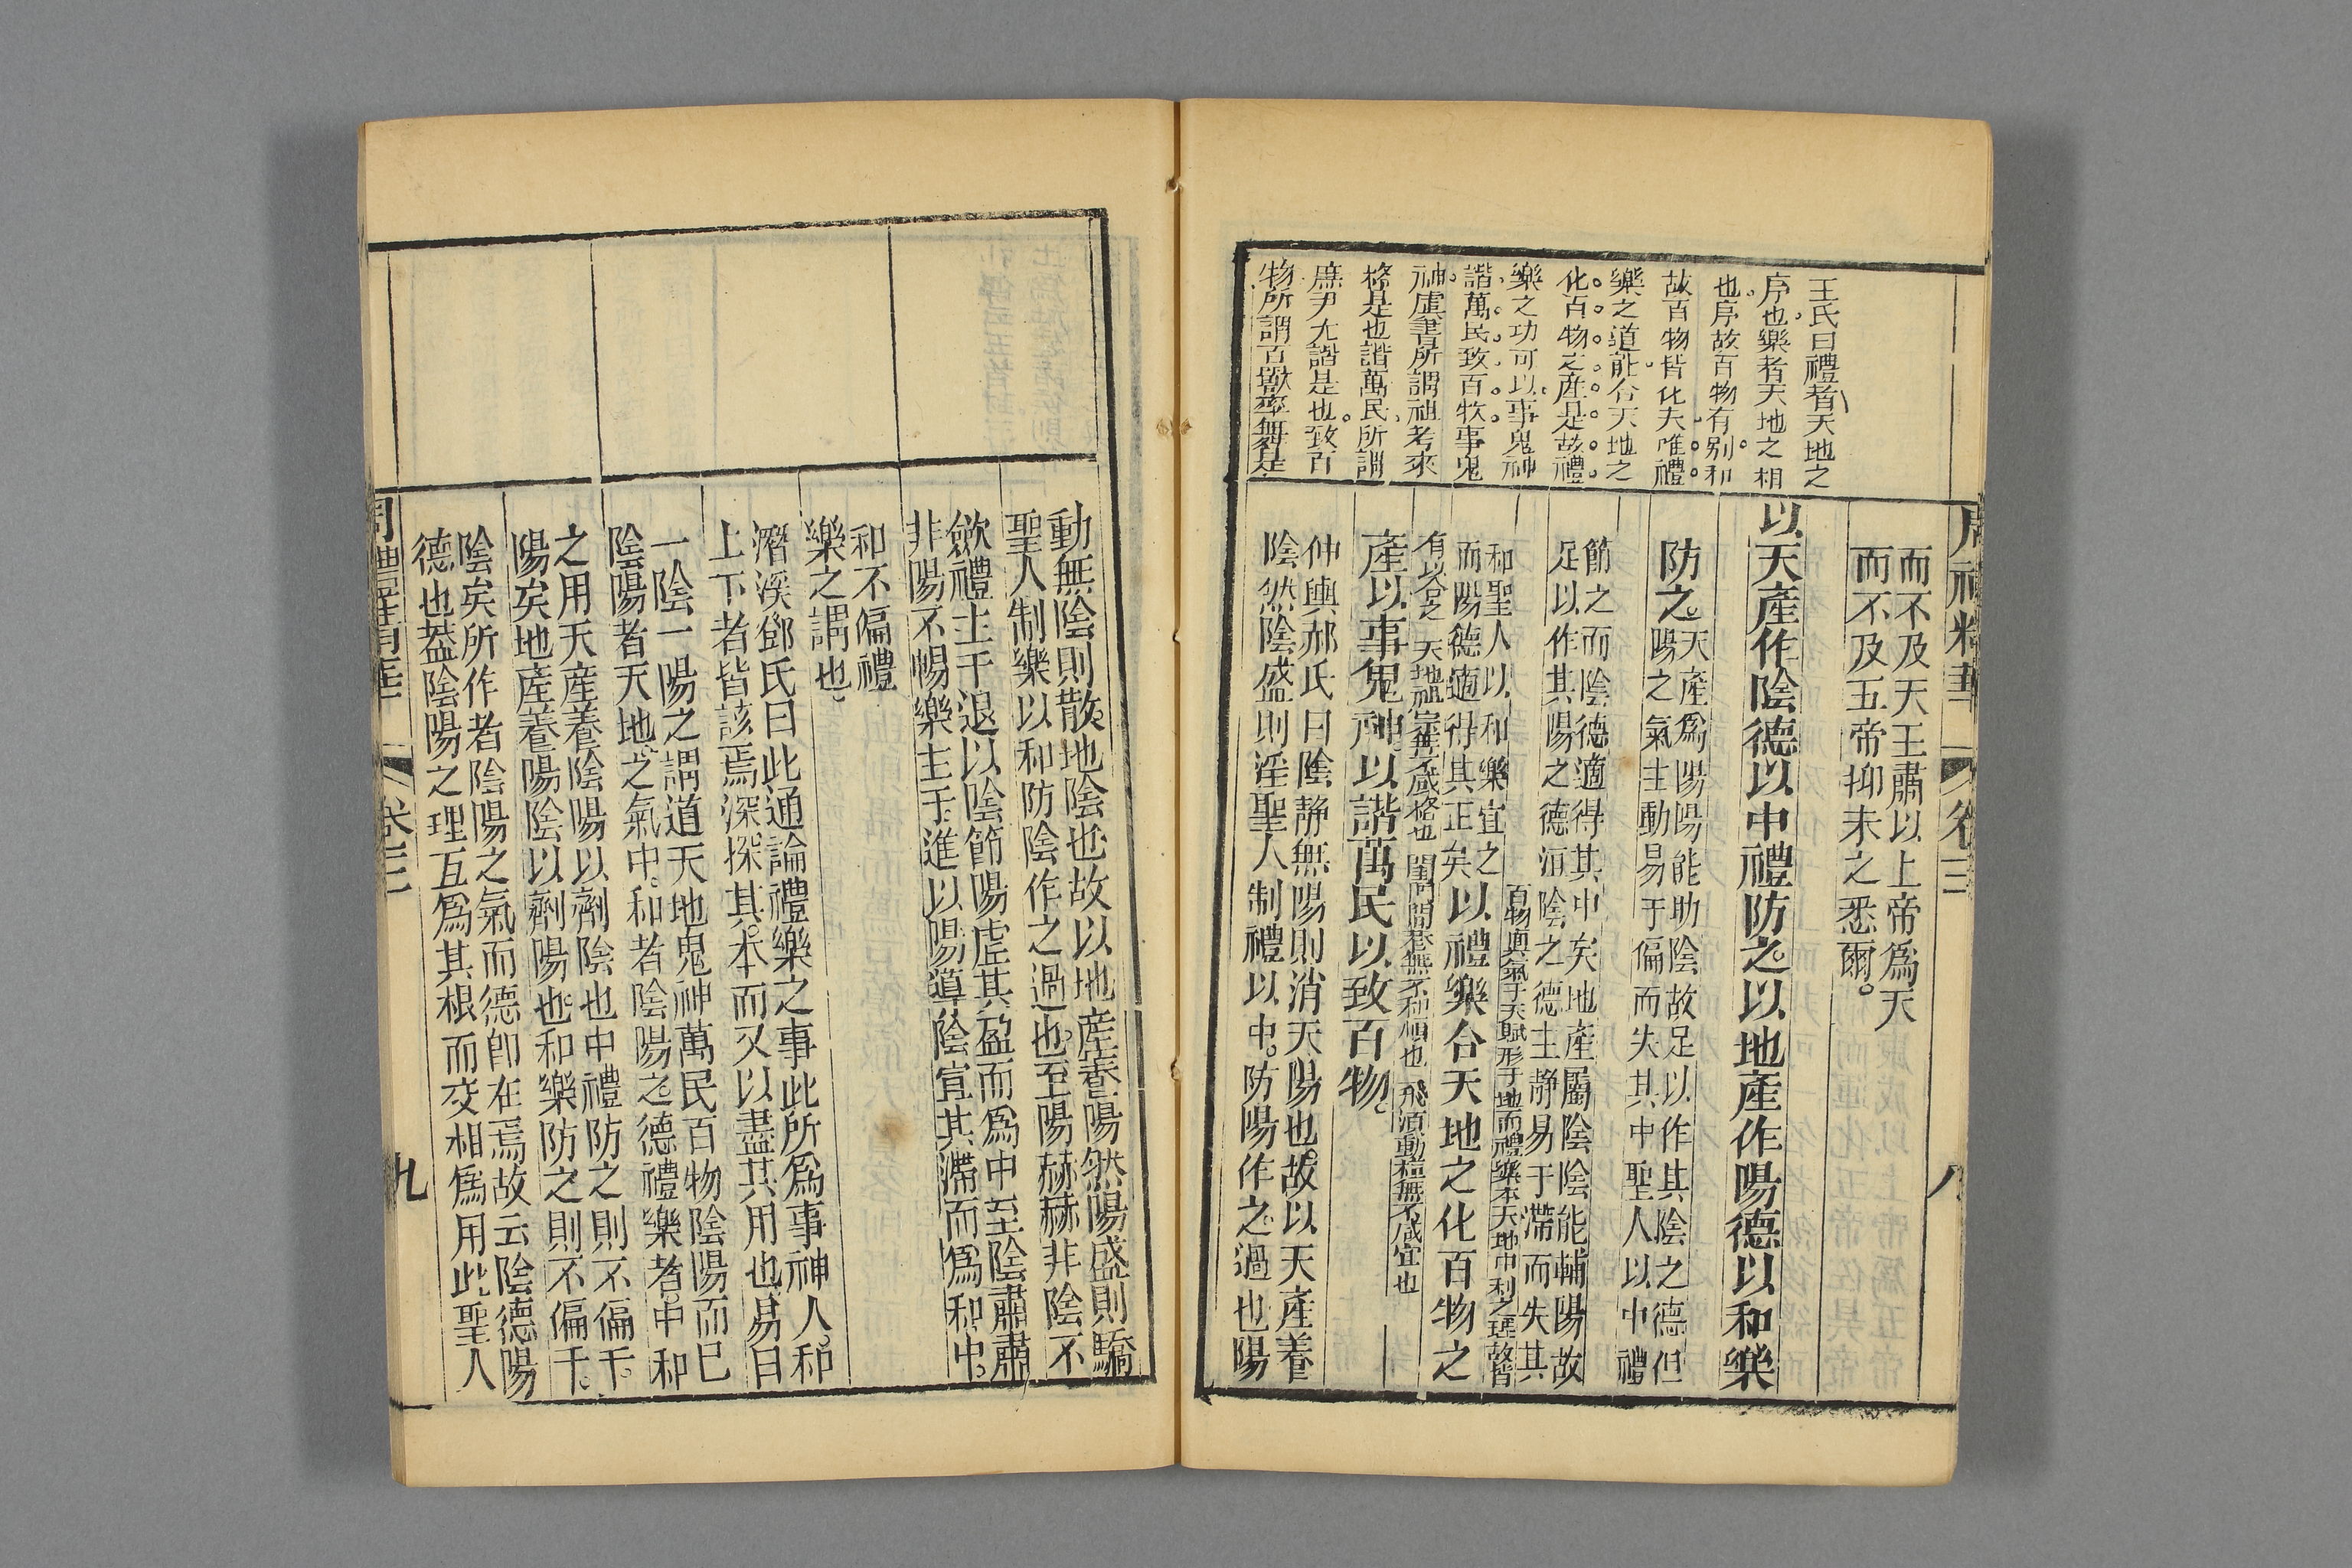 周禮精華
卷三
八
王氏曰禮者天地之
序也樂者天地之相
也序故百物有別和
故百物皆化夫唯禮
樂之道能合天地之
化百物之產是故禮
樂之功可以事鬼神
諧萬民致百物事鬼
神虞書所謂祖考來
格是也諧萬民所謂
庶尹尤諧是也致百
物所謂百獸率舞是
而不及天王肅以上帝爲天
而不及五帝抑未之悉爾
以天產作陰德以中禮防之以地產作陽德以和樂
防之
天產爲陽陽能助陰故足以作其陰之德但
陽之氣主動易于偏而失其中聖人以中禮
節之而陰德適得其中矣地產屬陰陰能輔陽故
足以作其陽之德陰之德主靜易于滯而失其
和聖人以和樂宜之
而陽德適得其正矣
以禮樂合天地之化百物之
百物與氣于天賦形于地而禮樂本天地中和之理故皆
有以合之
產以事鬼神以諧萬民以致百物
天地祖宗無不咸格也
閭閻巷無不和順也
飛潛動植無不咸宜也
仲輿郝氏曰陰靜無陽則消天陽也故以天產養
陰然陰盛則淫聖人制禮以中防陽作之過也陽
動無陰則散地陰也故以地產養陽然陽盛則驕
聖人制樂以和防陰作之過也至陽赫赫非陰不
斂禮主于退以陰節陽虛其盈而爲中至陰肅肅
非陽不暢樂主于進以陽導陰宣其滯而爲和中
和不偏禮
樂之謂也
潛溪鄧氏曰此通論禮樂之事此所爲事神人和
上下者皆該焉深探其本而又以盡其用也易曰
一陰一陽之謂道天地鬼神萬民百物陰陽而已
陰陽者天地之氣中和者陰陽之德禮樂者中和
之用天產養陰陽以劑陰也中禮防之則不偏干
陽矣地產養陽陰以劑陽也和樂防之則不偏干
陰矣所作者陰陽之氣而德卽在焉故云陰德陽
德也蓋陰陽之理互爲其根而交相爲用此聖人
周禮精華
卷三
九